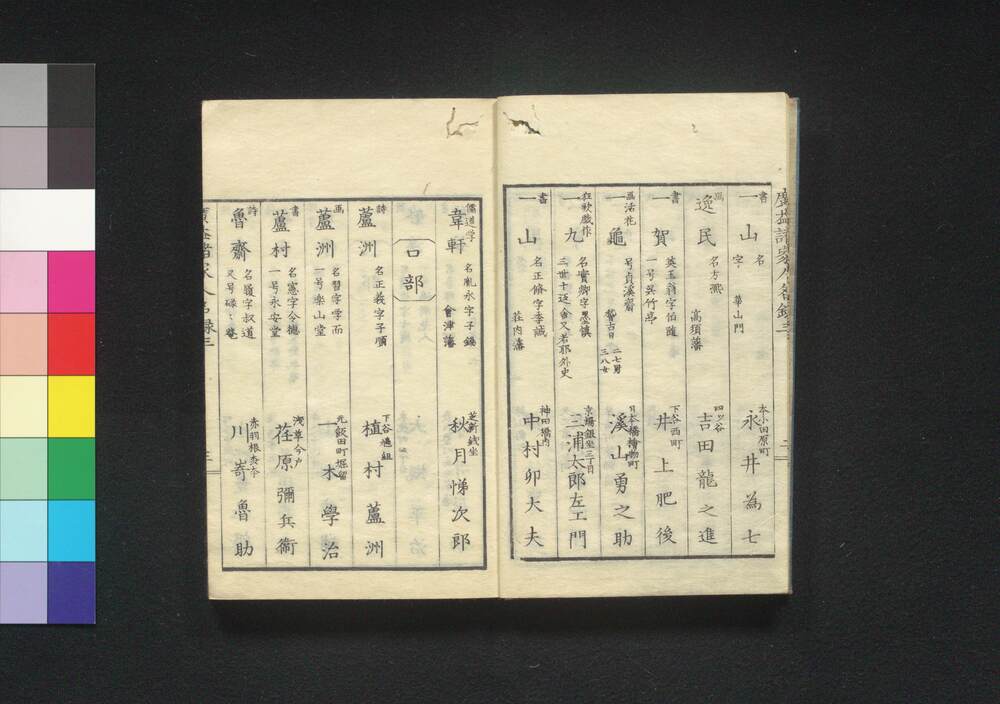 書 一山 名 字 華山門 本小田原町 永井為七
画 逸民 名方燕 高須藩 四ッ谷 吉田龍之進
書 一賀 英玉翁字伯随 一号呉竹亭 下谷西町 井上肥後
画活花 一龜 号貞溪齋 稽古日 二七男 三八女 日本橋檜物町 溪山勇之助
狂歌戯作 一九 名實卿字墨鎮 三世十返舎又若耶外史 京橋銀坐三丁目 三浦太郎左エ門
書 一山 名正脩字季誠 荘内藩 神田橋内 中村卯大夫
儒道学 韋軒 名胤永字子錫 會津藩 芝新銭坐 秋月悌次郎
ロ部
詩 蘆洲 名正義字子順 下谷 植村蘆洲
画 蘆洲 名習字学而 一号楽山堂 元飯田町堀留 一木學治
書 蘆村 名憲字公徳 一号永安堂 浅草今戸 荏原彌兵衛
詩 魯齋 名字叔道 又号碌々菴 赤羽根 川嵜魯助